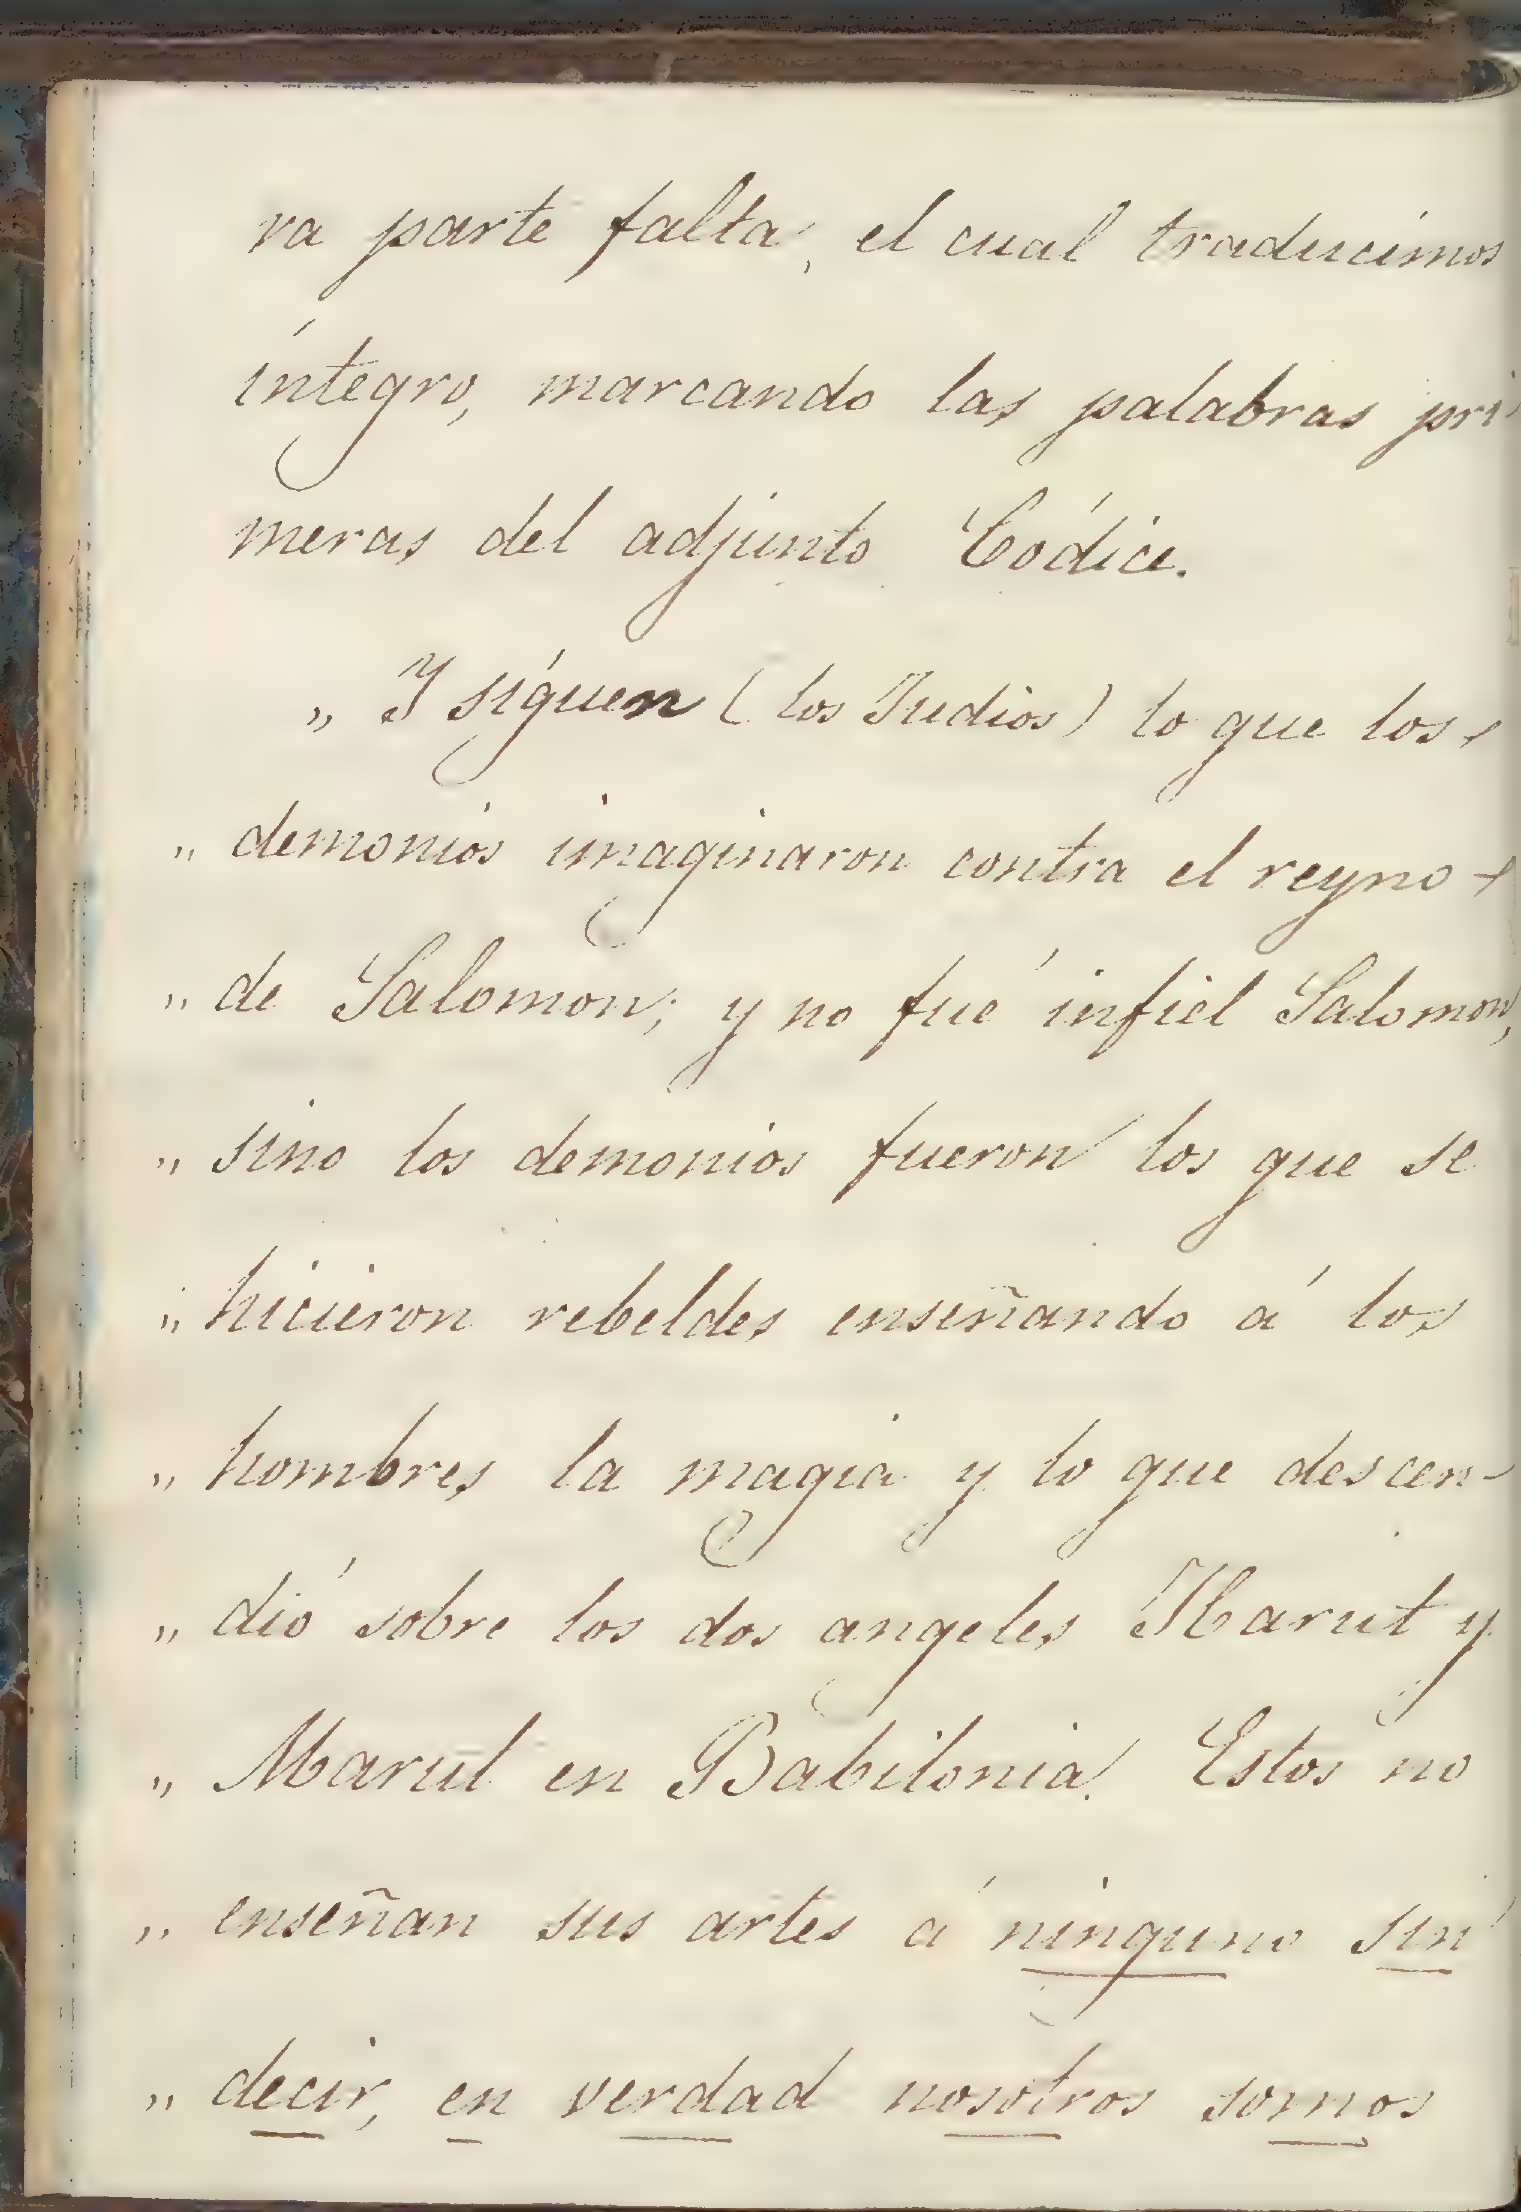 ra parte falta, el cual traducimos
íntegro, marcando las palabras pri
meras del adjunto Códice.
„ Y síguen (los Judios) lo que los
„ demonios imaginaron contra el reyno
„ de Salomon; y no fué infiel Salomon,
„ sino los demonios fueron los que se
„ hicieron rebeldes enseñando á los
„ hombres la magia y lo que descen-
„ dió sobre los dos angeles Harut y
„ Marut en Babilonia. Estos no
„ enseñan sus artes á ninguno sin
„ decir, en verdad nosotros somos